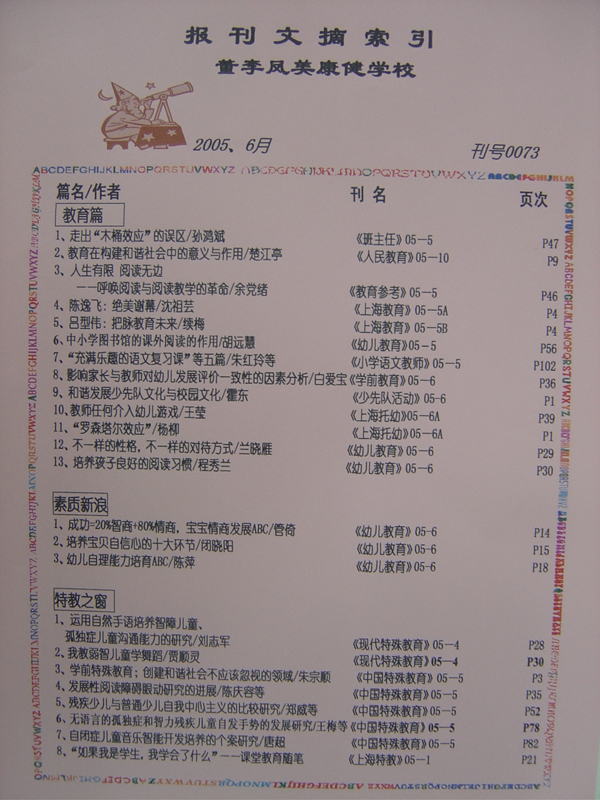 报刊文摘索引
董李凤美康健学校
2005、6月 刊号0073
ABCDEFGHIJKLMNOPQRSTUVWXYZ ABCDEFGHIJKLMNOPQRSTUVWXYZ ABCDEFGHIJKLM
篇名/作者 刊 名 页次
教育篇
1、走出“木桶效应”的误区/孙鸿斌 《班主任》05-5 P47
2、教育在构建和谐社会中的意义与作用/楚江亭 《人民教育》05-10 P9
3、人生有限 阅读无边
——呼唤阅读与阅读教学的革命/余党绪 《教育参考》05-5 P46
4、陈逸飞：绝美谢幕/沈祖芸 《上海教育》05-5A P4
5、吕型伟：把脉教育未来/续梅 《上海教育》05-5B P4
6、中小学图书馆的课外阅读的作用/胡远慧 《幼儿教育》05-5 P56
7、“充满乐趣的语文复习课”等五篇/朱红玲等 《小学语文教师》05-5 P102
8、影响家长与教师对幼儿发展评价一致性的因素分析/白爱宝 《学前教育》05-6 P36
9、和谐发展少先队文化与校园文化/霍东 《少先队活动》05-6 P1
10、教师任何介入幼儿游戏/王莹 《上海托幼》05-6A P39
11、“罗森塔尔效应”/杨柳 《上海托幼》05-6A P1
12、不一样的性格，不一样的对待方式/兰晓雁 《幼儿教育》05-6 P29
13、培养孩子良好的阅读习惯/程秀兰 《幼儿教育》05-6 P30
素质新浪
1、成功=20%智商+80%情商，宝宝情商发展ABC/管倚 《幼儿教育》05-6 P14
2、培养宝贝自信心的十大环节/闭晓阳 《幼儿教育》05-6 P15
3、幼儿自理能力培育ABC/陈萍 《幼儿教育》05-6 P18
特教之窗
1、运用自然手语培养智障儿童、
孤独症儿童沟通能力的研究/刘志军 《现代特殊教育》05-4 P28
2、我教弱智儿童学舞蹈/贾顺灵 《现代特殊教育》05-4 P30
3、学前特殊教育：创建和谐社会不应该忽视的领域/朱宗顺 《中国特殊教育》05-5 P3
4、发展性阅读障碍眼动研究的进展/陈庆容等 《中国特殊教育》05-5 P35
5、残疾少儿与普通少儿自我中心主义的比较研究/郑威等 《中国特殊教育》05-5 P52
6、无语言的孤独症和智力残疾儿童自发手势的发展研究/王梅等 《中国特殊教育》05-5 P78
7、自闭症儿童音乐智能开发培养的个案研究/唐超 《中国特殊教育》05-5 P82
8、“如果我是学生，我学会了什么”——课堂教育随笔 《上海特教》05-1 P21